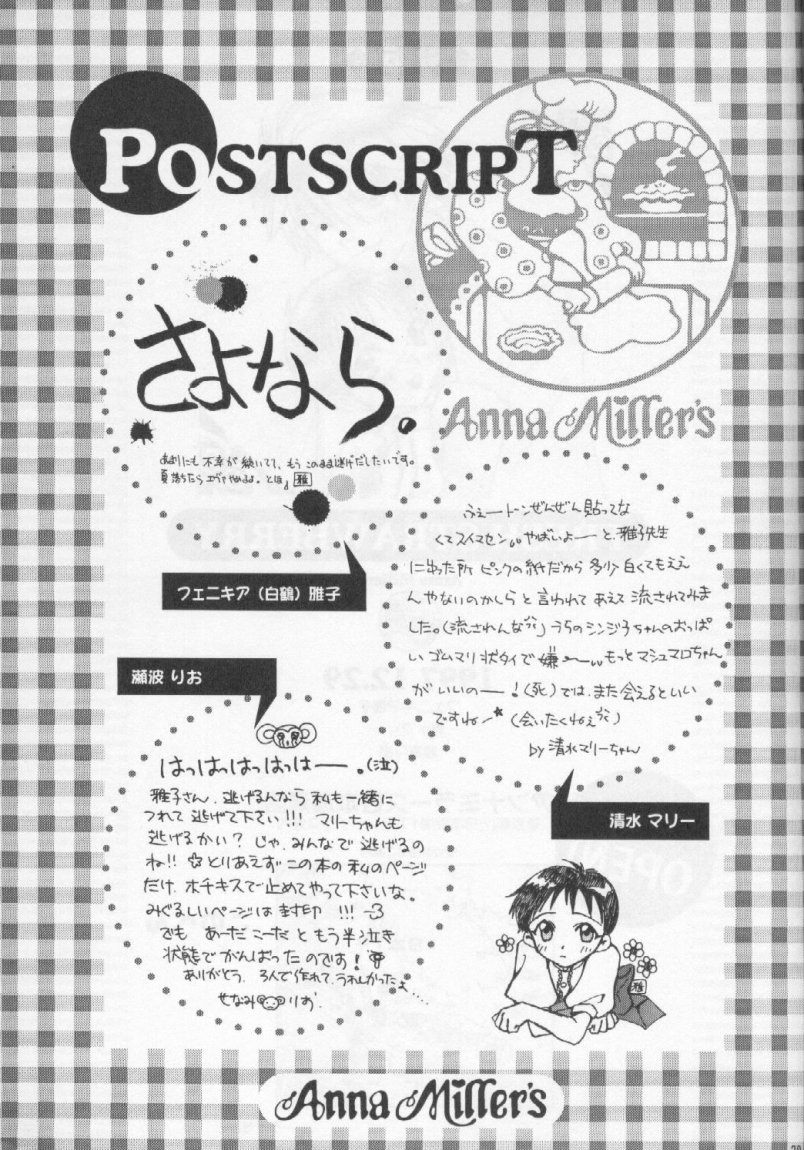 POSTSCRIPT
Anna Miller's
さよなら。
あまりにも不幸が続いてて、もうこのまま逃げだしたいです。
夏落ちたらエヴァやめるよ。とほ。雅
フェニキア（白鶴）雅子
ふぇーートーンぜんぜん貼ってな
くてスイマセン。やばいよーーと、雅子先生
に出った所 ピンクの紙だから 多少 白くてもええ
んやないのかしらと言われて あえて 流されてみま
した。(流されんな) うちのシンジ子ちゃんのおっぱ
い ゴムマリ状タイで嫌ー もっと マシュマロちゃん
が いいのー！(死) では、また会えるといい
ですね★ (会いたくねぇ)
by 清水マリーちゃん
清水 マリー
瀬波 りお
はっはっはっはっはーー。(泣)
雅子さん、逃げるんなら 私も一緒に
つれて 逃げて下さい!!! マリーちゃんも
逃げるかい？ じゃ、みんなで 逃げるの
ね!! ☆とりあえず この本の 私のページ
だけ、ホチキスで止めてやって下さいな。
みぐるしいページは 封印 !!!
でも あーだ こーだ と もう 半泣き
状態で がんばった のです！
ありがとう、3人で作れて、うれしかったよ…
せなみ りお
雅
Anna Miller's